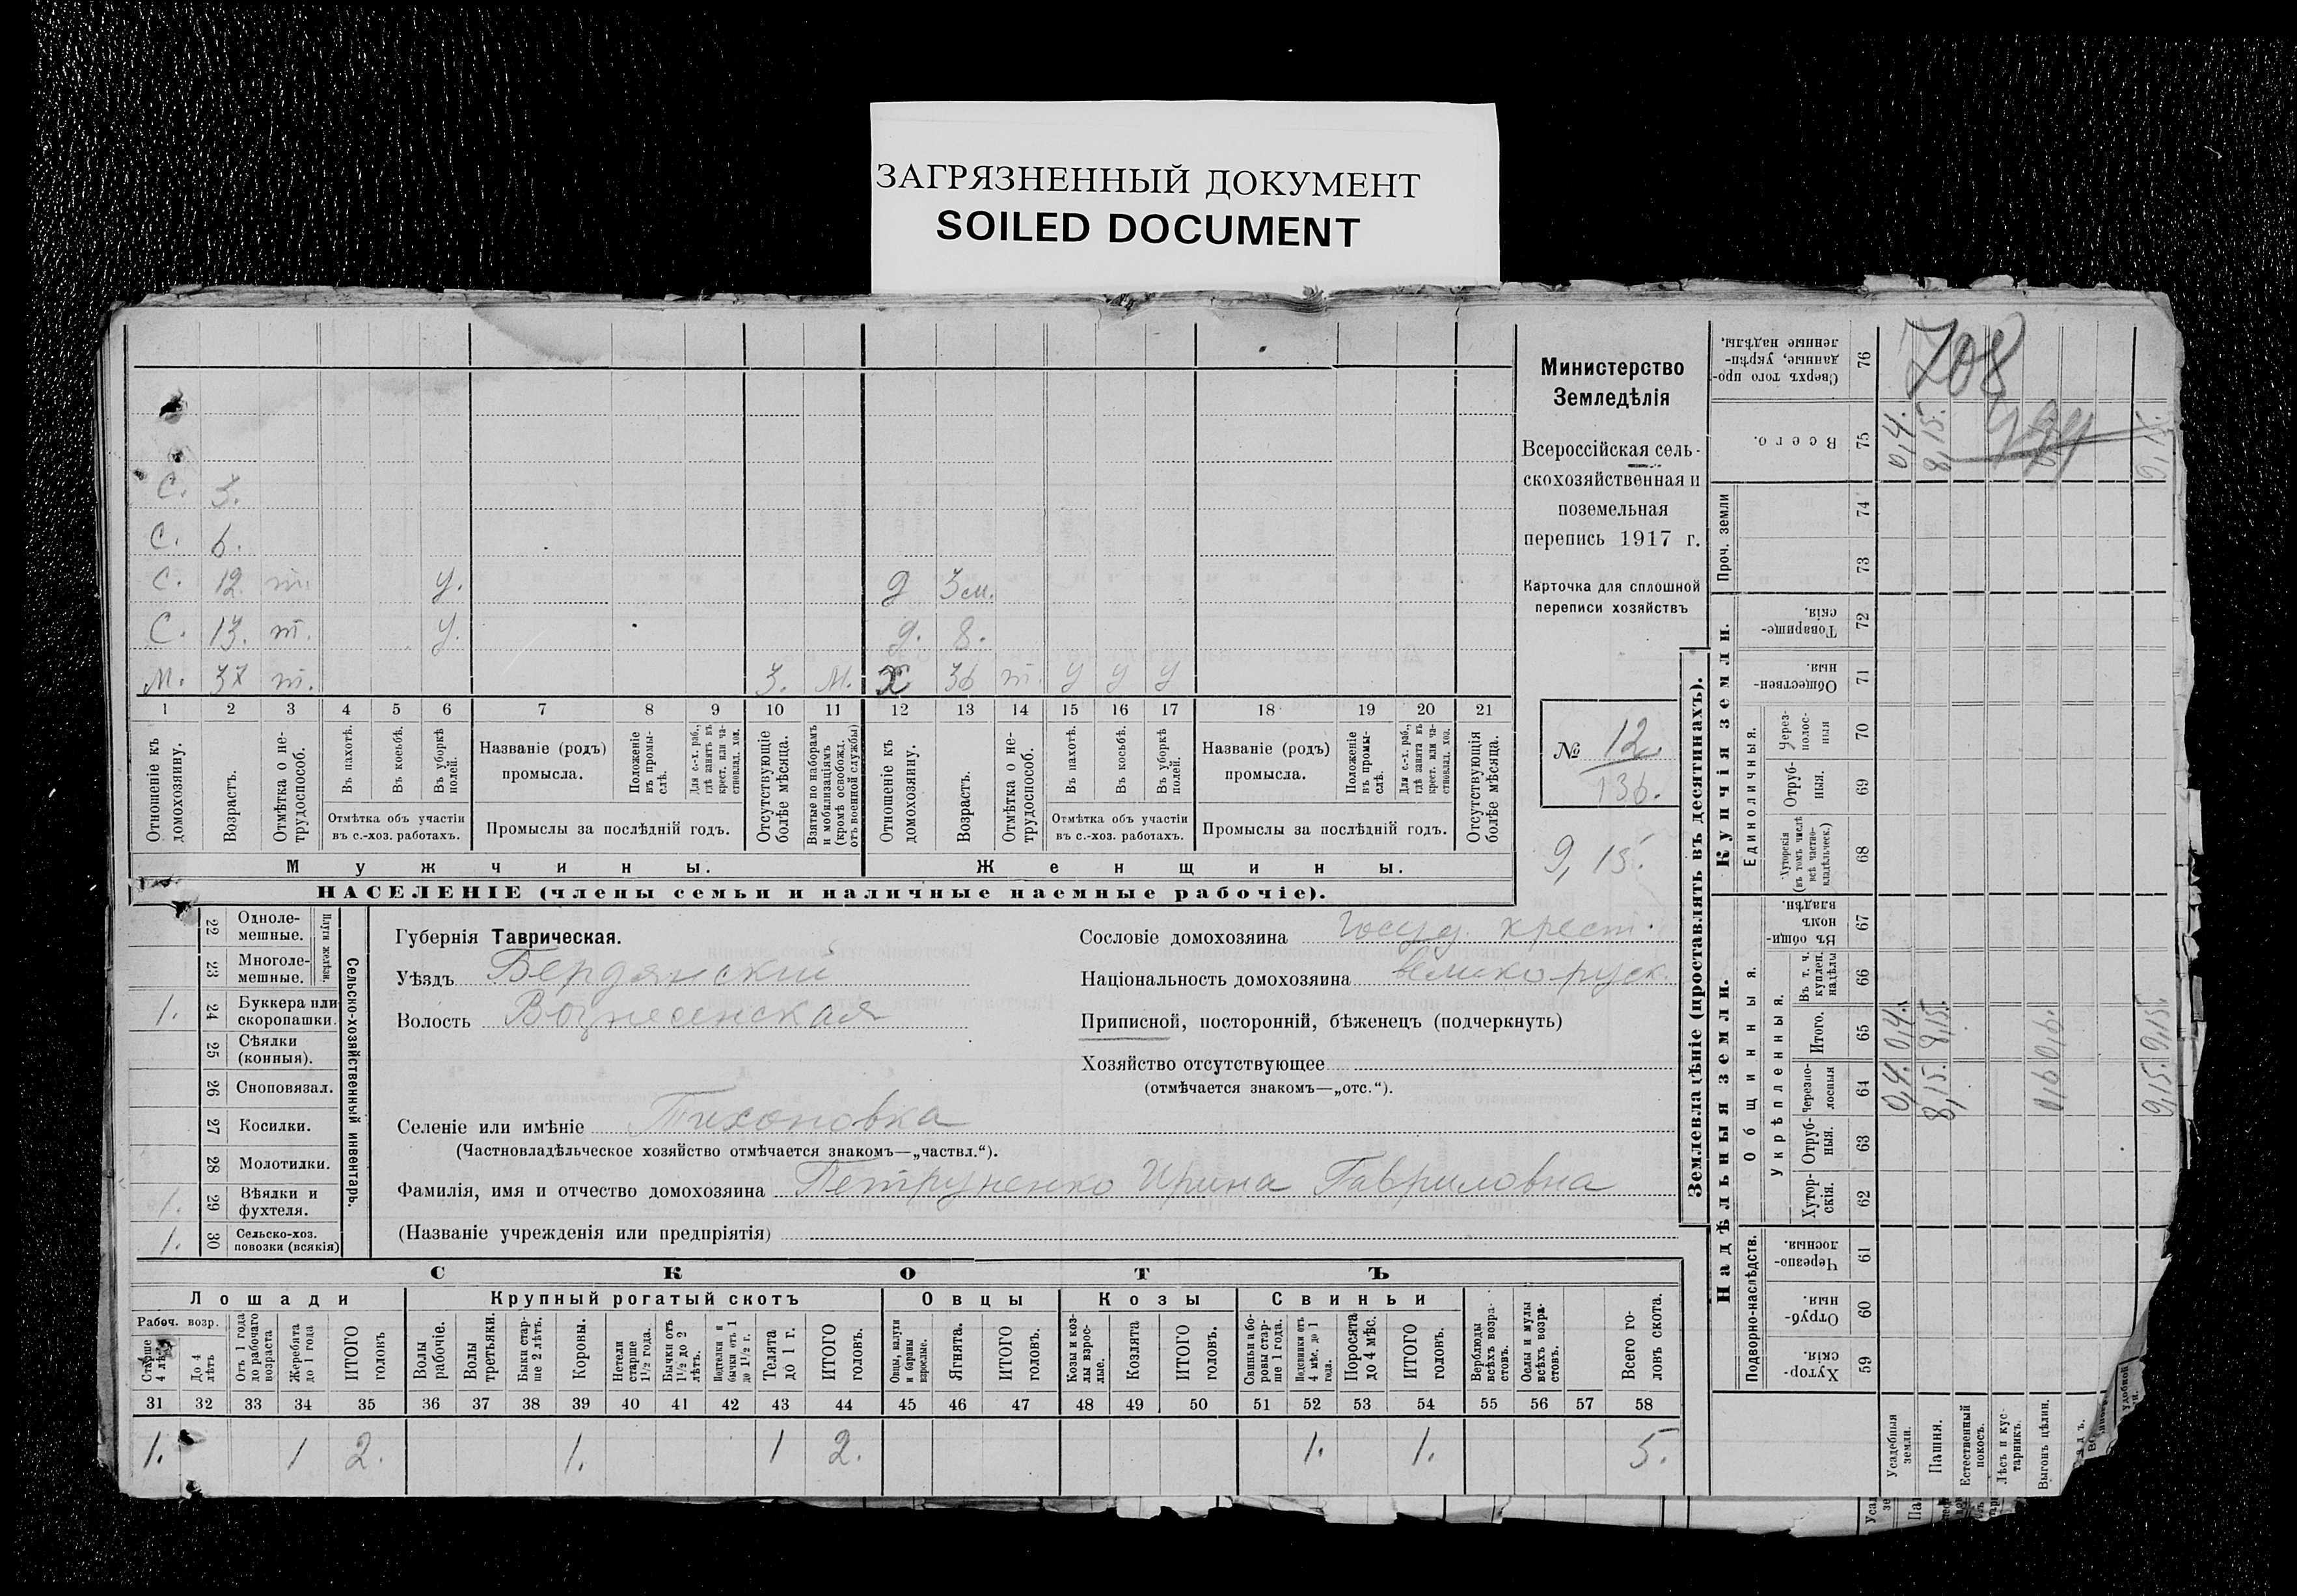 ЗАГРЯЗНЕННЫЙ ДОКУМЕНТ
SOILED DOCUMENT
С. 3.
С. 6.
С. 12. т. У. д 3 м.
С. 13. т. У. д. 8.
М. 37 т. 3. М. х 36 т. У У У
1 2 3 4 5 6 7 8 9 10 11 12 13 14 15 16 17 18 19 20 21
Отношеніе къ домохозяину.
Возрастъ.
Отмѣтка о не-трудоспособ.
Въ пахотѣ.
Въ косьбѣ.
Въ уборкѣ полей.
Отмѣтка объ участіи въ с.-хоз. работахъ.
Названіе (родъ) промысла.
Положеніе въ промы-слѣ.
Для с.-х. раб., гдѣ занятъ въ крест. или ча-стновлад. хоз.
Промыслы за послѣдній годъ.
Отсутствующіе болѣе мѣсяца.
Взятые по наборамъ и мобилизаціямъ (кромѣ освобожд. отъ военной службы)
Отношеніе къ домохозяину.
Возрастъ.
Отмѣтка о не-трудоспособ.
Въ пахотѣ.
Въ косьбѣ.
Въ уборкѣ полей.
Отмѣтка объ участіи въ с.-хоз. работахъ.
Названіе (родъ) промысла.
Положеніе въ промы-слѣ.
Для с.-х. раб., гдѣ занята въ крест. или ча-стновлад. хоз.
Промыслы за послѣдній годъ.
Отсутствующія болѣе мѣсяца.
Мужчины. Женщины.
НАСЕЛЕНІЕ (члены семьи и наличные наемные рабочіе).
Министерство
Земледѣлія
Всероссійская сель-
скохозяйственная и
поземельная
перепись 1917 г.
Карточка для сплошной
переписи хозяйствъ
№ 12
136.
9,15.
Плуги желѣзн.
22 Одноле-мешные.
23 Многоле-мешные.
1. 24 Буккера или скоропашки.
25 Сѣялки (конныя).
26 Сноповязал.
27 Косилки.
28 Молотилки.
1. 29 Вѣялки и фухтеля.
1. 30 Сельско-хоз. повозки (всякія)
Сельско-хозяйственный инвентарь.
Губернія Таврическая.
Уѣздъ Бердянскій
Волость Вознесенская
Сословіе домохозяина Госуд. крест.
Національность домохозяина великорусск.
Приписной, посторонній, бѣженецъ (подчеркнуть)
Хозяйство отсутствующее
(отмѣчается знакомъ—„отс.“).
Селеніе или имѣніе Тихоновка
(Частновладѣльческое хозяйство отмѣчается знакомъ—„частвл.“).
Фамилія, имя и отчество домохозяина Петруненко Ирина Гавриловна
(Названіе учрежденія или предпріятія)
СКОТЪ
Лошади Крупный рогатый скотъ Овцы Козы Свиньи
Рабоч. возр.
Старше 4 лѣтъ
До 4 лѣтъ
Отъ 1 года до рабочаго возраста
Жеребята до 1 года
ИТОГО головъ
Волы рабочіе.
Волы третьяки.
Быки стар-ше 2 лѣтъ.
Коровы.
Нетели старше 1½ года.
Бычки отъ 1½ до 2 лѣтъ.
Подтелки и бычки отъ 1 до 1½ г.
Телята до 1 г.
ИТОГО головъ.
Овцы, валухи и бараны взрослые.
Ягнята.
ИТОГО головъ.
Козы и коз-лы взрос-лые.
Козлята
ИТОГО головъ.
Свиньи и бо-ровы стар-ше 1 года.
Подсвинки отъ 4 мѣс. до 1 года.
Поросята до 4 мѣс.
ИТОГО головъ.
Верблюды всѣхъ возра-стовъ.
Ослы и мулы всѣхъ возра-стовъ.
Всего го-ловъ скота.
31 32 33 34 35 36 37 38 39 40 41 42 43 44 45 46 47 48 49 50 51 52 53 54 55 56 57 58
1. 1 2. 1. 1 2. 1. 1. 5.
Землевладѣніе (проставлять въ десятинахъ).
Надѣльныя земли. Купчія земли.
Подворно-наслѣдств.
Общинныя.
Укрѣпленныя.
Единоличныя.
Проч. земли
Хутор-скія. 59
Отруб-ныя. 60
Черезпо-лосныя. 61
Хутор-скія. 62
Отруб-ныя. 63
Черезпо-лосныя 64
Итого. 65
Въ т. ч. куплен. надѣлы 66
Въ общин-номъ владѣн. 67
Хуторскія (въ томъ числѣ всѣ частно-владѣльческ.) 68
Отруб-ныя. 69
Через-полос-ныя 70
Обществен-ныя. 71
Товарище-скія. 72
73
74
Всего. 75
Сверхъ того про-данные, укрѣп-ленные надѣлы. 76
Усадебныя земли. 0,4. 0,4. 0,4.
Пашня. 8,15. 8,15. 8,15.
Естественный покосъ.
Лѣсъ и кус-тарникъ.
Выгонъ цѣлин. 0,6 0,6.
9,15. 9,15. 9,15.
708